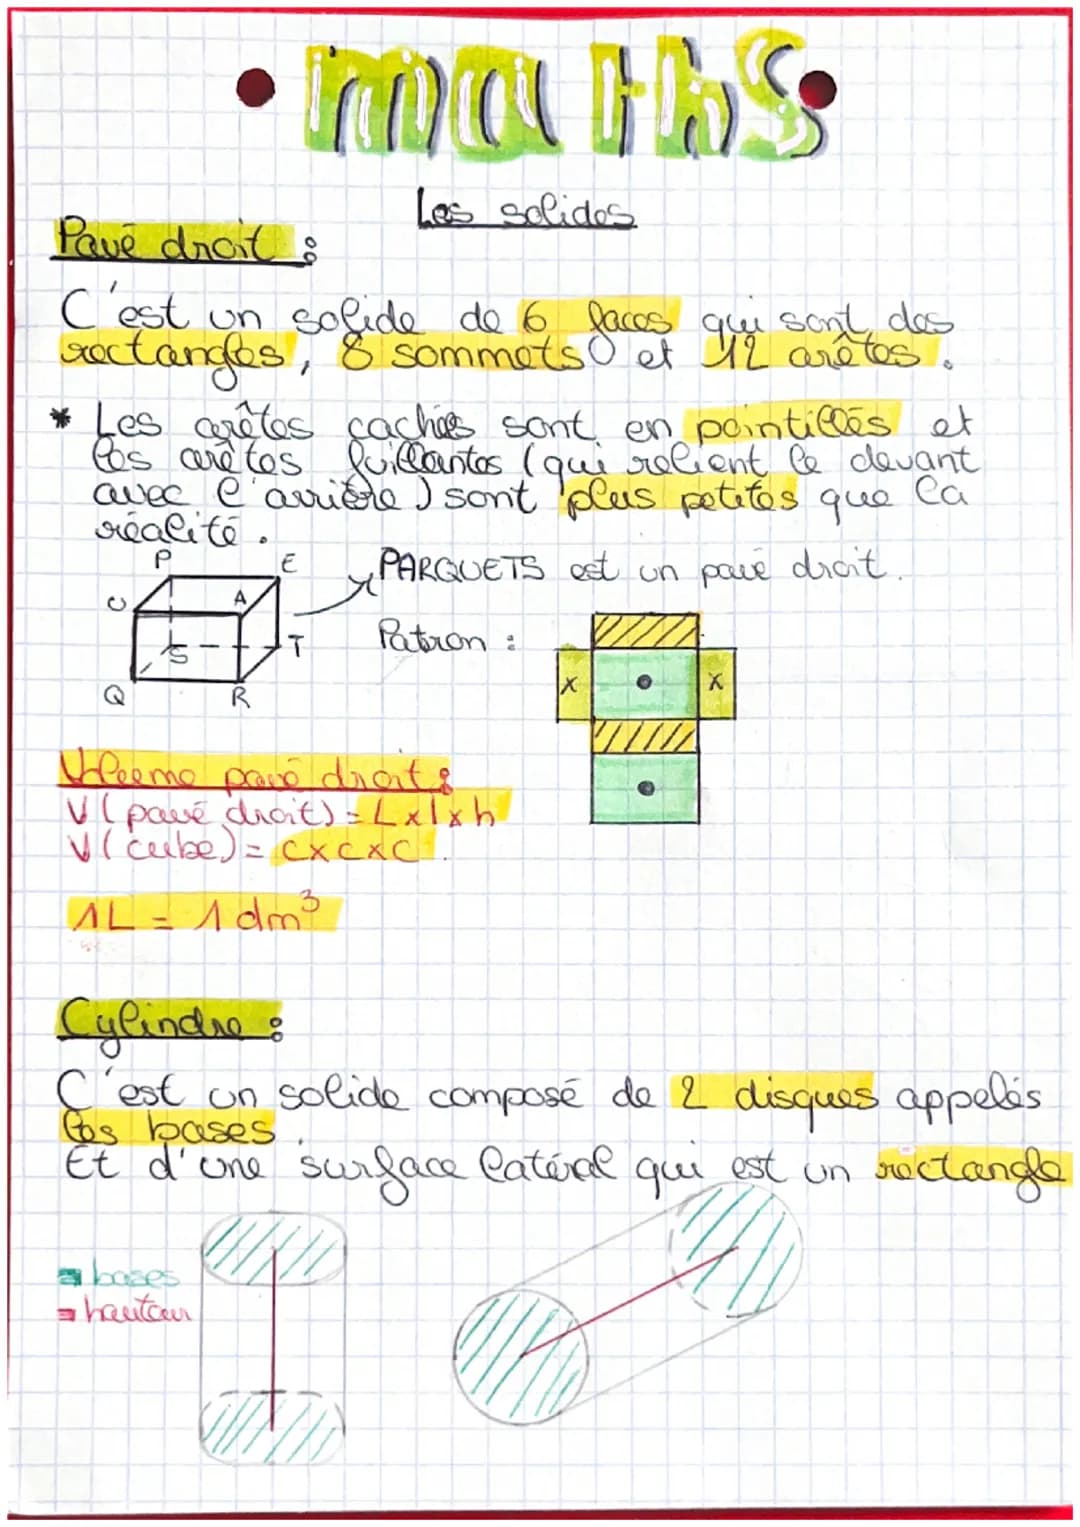 maths
Les solides
Pavé droit :
C'est un solide de 6 faces qui sont des
rectangles, 8 sommets et 12 arêtes.
* Les arêtes cachés sont en pointillés et
les arêtes fuillantes (qui relient le devant
avec l'arrière) sont plus petites que la
réalité.
P E
U A
S T
Q R
PARQUETS est un pavé droit.
Patron :
x x
Voleeme pavé droit :
V(pavé droit) = L x l x h
V(cube) = c x c x c.
1L = 1 dm³
Cylindre :
C'est un solide composé de 2 disques appelés
les bases.
Et d'une surface latéral qui est un rectangle
bases
hauteur